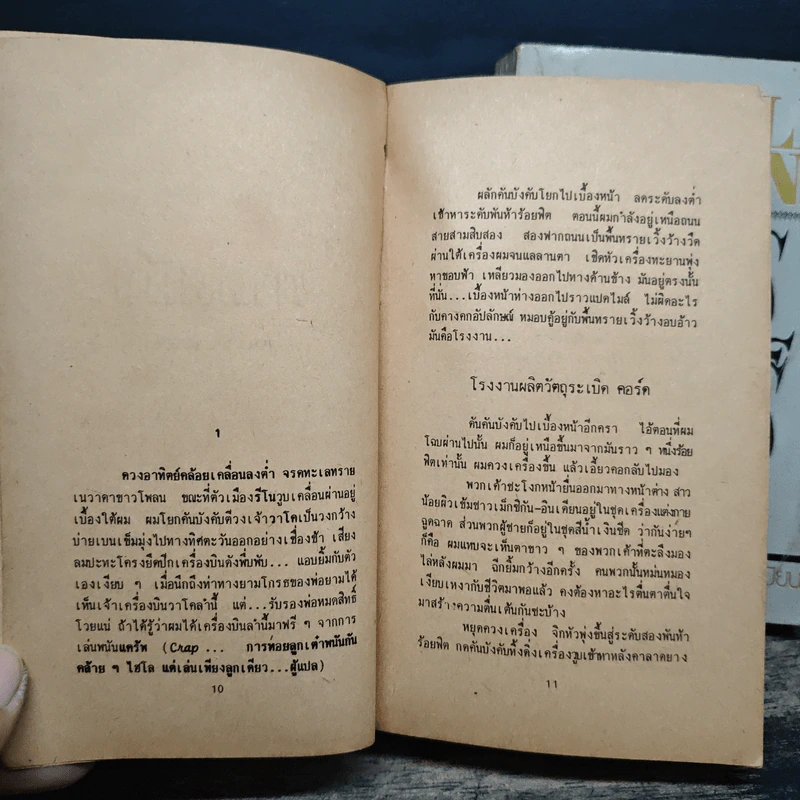 1
ดวงอาทิตย์คล้อยเคลื่อนลงต่ำ จรดทะเลทราย
เนวาดาขาวโพลน ขณะที่ตัวเมืองรีโนวูบเคลื่อนผ่านอยู่
เบื้องใต้ผม ผมโยกคันบังคับตีวงเจ้าวาโคเป็นวงกว้าง
บ่ายเบนเข็มมุ่งไปทางทิศตะวันออกอย่างเชื่องช้า เสียง
ลมปะทะโครงยึดปีกเครื่องบินดังพึ่บพั่บ... แอบยิ้มกับตัว
เองเงียบ ๆ เมื่อนึกถึงท่าทางยามโกรธของพ่อยามได้
เห็นเจ้าเครื่องบินวาโคลำนี้ แต่...รับรองพ่อหมดสิทธิ์
โวยแน่ ถ้าได้รู้ว่าผมได้เครื่องบินลำนี้มาฟรี ๆ จากการ
เล่นพนันแคร็พ (Crap ... การทอยลูกเต๋าพนันกัน
คล้าย ๆ ไฮโล แต่เล่นเพียงลูกเดียว...ผู้แปล)
10
ผลักคันบังคับโยกไปเบื้องหน้า ลดระดับลงต่ำ
เข้าหาระดับพันห้าร้อยฟิต ตอนนี้ผมกำลังอยู่เหนือถนน
สายสามสิบสอง สองฟากถนนเป็นพื้นทรายเวิ้งว้างวืด
ผ่านใต้เครื่องผมจนแลลานตา เชิดหัวเครื่องทะยานพุ่ง
หาขอบฟ้า เหลียวมองออกไปทางด้านข้าง มันอยู่ตรงนั้น
ที่นั่น...เบื้องหน้าห่างออกไปราวแปดไมล์ ไม่ผิดอะไร
กับคางคกอัปลักษณ์ หมอบคู้อยู่กับพื้นทรายเวิ้งว้างอบอ้าว
มันคือโรงงาน...
โรงงานผลิตวัตถุระเบิด คอร์ด
ดันคันบังคับไปเบื้องหน้าอีกครา ไอ้ตอนที่ผม
โฉบผ่านไปนั้น ผมก็อยู่เหนือขึ้นมาจากมันราว ๆ หนึ่งร้อย
ฟิตเท่านั้น ผมควงเครื่องขึ้น แล้วเอี้ยวคอกลับไปมอง
พวกเค้าชะโงกหน้ายื่นออกมาทางหน้าต่าง สาว
น้อยผิวเข้มชาวเม็กซิกัน-อินเดียนอยู่ในชุดเครื่องแต่งกาย
ฉูดฉาด ส่วนพวกผู้ชายก็อยู่ในชุดสีน้ำเงินซีด ว่ากันง่ายๆ
ก็คือ ผมแทบจะเห็นตาขาว ๆ ของพวกเค้าที่ตะลึงมอง
ไล่หลังผมมา ฉีกยิ้มกว้างอีกครั้ง คนพวกนั้นหม่นหมอง
เงียบเหงากับชีวิตมาพอแล้ว คงต้องหาอะไรตื่นตาตื่นใจ
มาสร้างความตื่นเต้นกันซะบ้าง
หยุดควงเครื่อง จิกหัวพุ่งขึ้นสู่ระดับสองพันห้า
ร้อยฟิต กดคันบังคับทิ้งดิ่งเครื่องวูบเข้าหาหลังคาลาดยาง
11